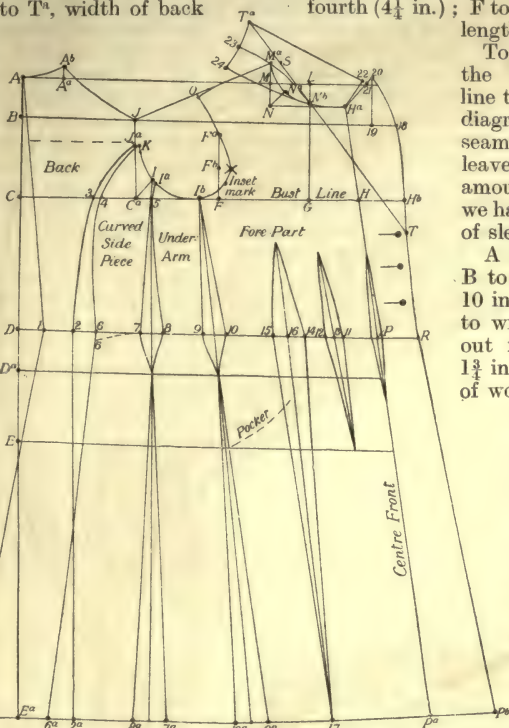 to Tᵃ, width of back
fourth (4¼ in.) ; F to
length
To
the
line t
diagr
seam
leave
amou
we ha
of sle
A
B to
10 in
to wi
out
1¾ in
of wo
Tᵃ
23
24
Aᵇ
A
Aᵃ
Mᵃ
S
M
L
22
20
21
O
Nᵃ
Nᵇ
N
Hᵃ
B
J
19
18
Jᵃ
K
Fᵃ
Back
Fᵇ
Iᵃ
Inset
mark
C
3
4
Cᵃ
5
Iᵇ
F
Bust Line
G
H
Hᵇ
Curved
Side
Piece
Under-
Arm
Fore Part
T
D
1
2
6
6
7
8
9
10
15
16
14
12
13
11
P
R
Dᵃ
E
Pocket
Centre Front
Eᵃ
17
Pᵃ